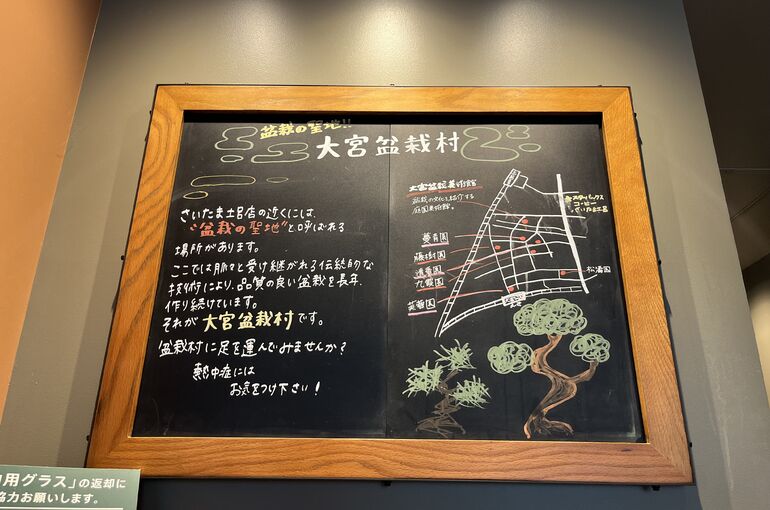 盆栽の聖地!!
大宮盆栽村
さいたま土呂店の近くには
"盆栽の聖地"と呼ばれる
場所があります。
ここでは脈々と受け継がれる伝統的な
技術により、品質の良い盆栽を長年、
作り続けています。
それが大宮盆栽村です。
盆栽村に足を運んでみませんか？
熱中症には
お気をつけ下さい！
大宮盆栽美術館
盆栽の文化を紹介する
庭園美術館。
スターバックス
コーヒー
さいたま土呂
蔓青園
藤樹園
清香園
九霞園
芙蓉園
松濤園
用グラス」の返却に
協力お願いします。